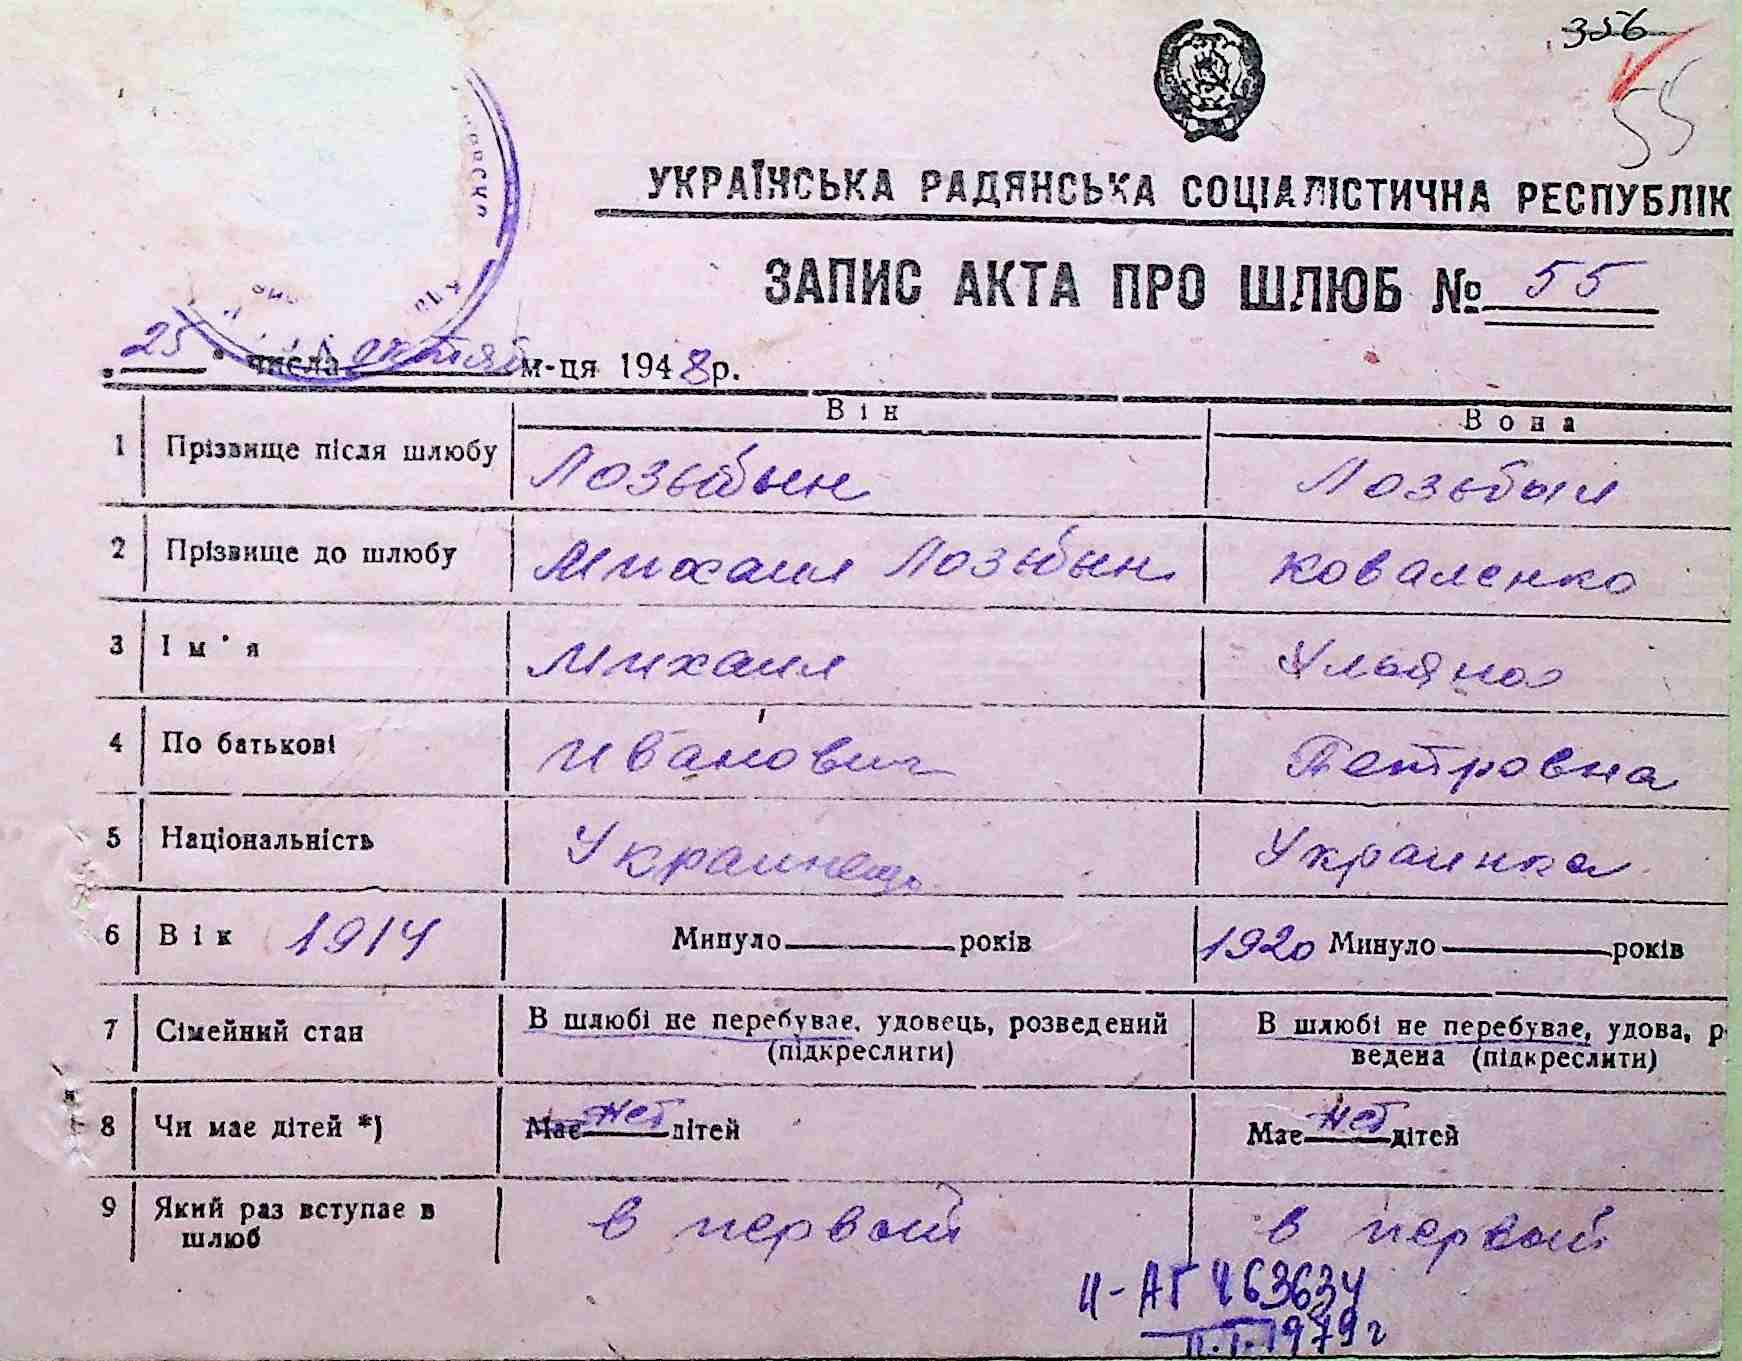 356
55
УКРАЇНСЬКА РАДЯНСЬКА СОЦІАЛІСТИЧНА РЕСПУБЛІК
ЗАПИС АКТА ПРО ШЛЮБ № 55
„25“ числа октяб м-ця 1948 р.
Він Вона
1 Прізвище після шлюбу Лозыбын Лозыбын
2 Прізвище до шлюбу Михаил Лозыбын Коваленко
3 Ім'я Михаил Ульяна
4 По батькові Иванович Петровна
5 Національність Украинец Украинка
6 Вік 1914 Минуло років 1920 Минуло років
7 Сімейний стан В шлюбі не перебуває, удовець, розведений (підкреслити) В шлюбі не перебуває, удова, р
ведена (підкреслити)
8 Чи має дітей *) Має нет дітей Має нет дітей
9 Який раз вступає в шлюб в первой в первой
II-АГ 463634
1979 г